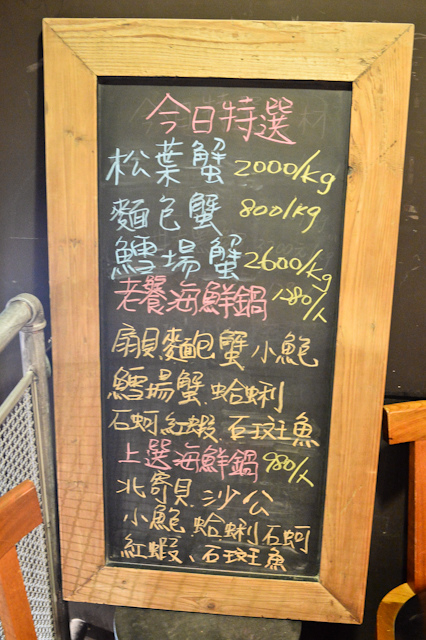 今日特選
松葉蟹 2000/kg
麵包蟹 800/kg
鱈場蟹 2600/kg
老饕海鮮鍋 1280/人
扇貝.麵包蟹.小鮑
鱈場蟹.蛤蜊
石蚵.紅蝦.石斑魚
上選海鮮鍋 980/人
北寄貝.沙公
小鮑.蛤蜊.石蚵
紅蝦、石斑魚